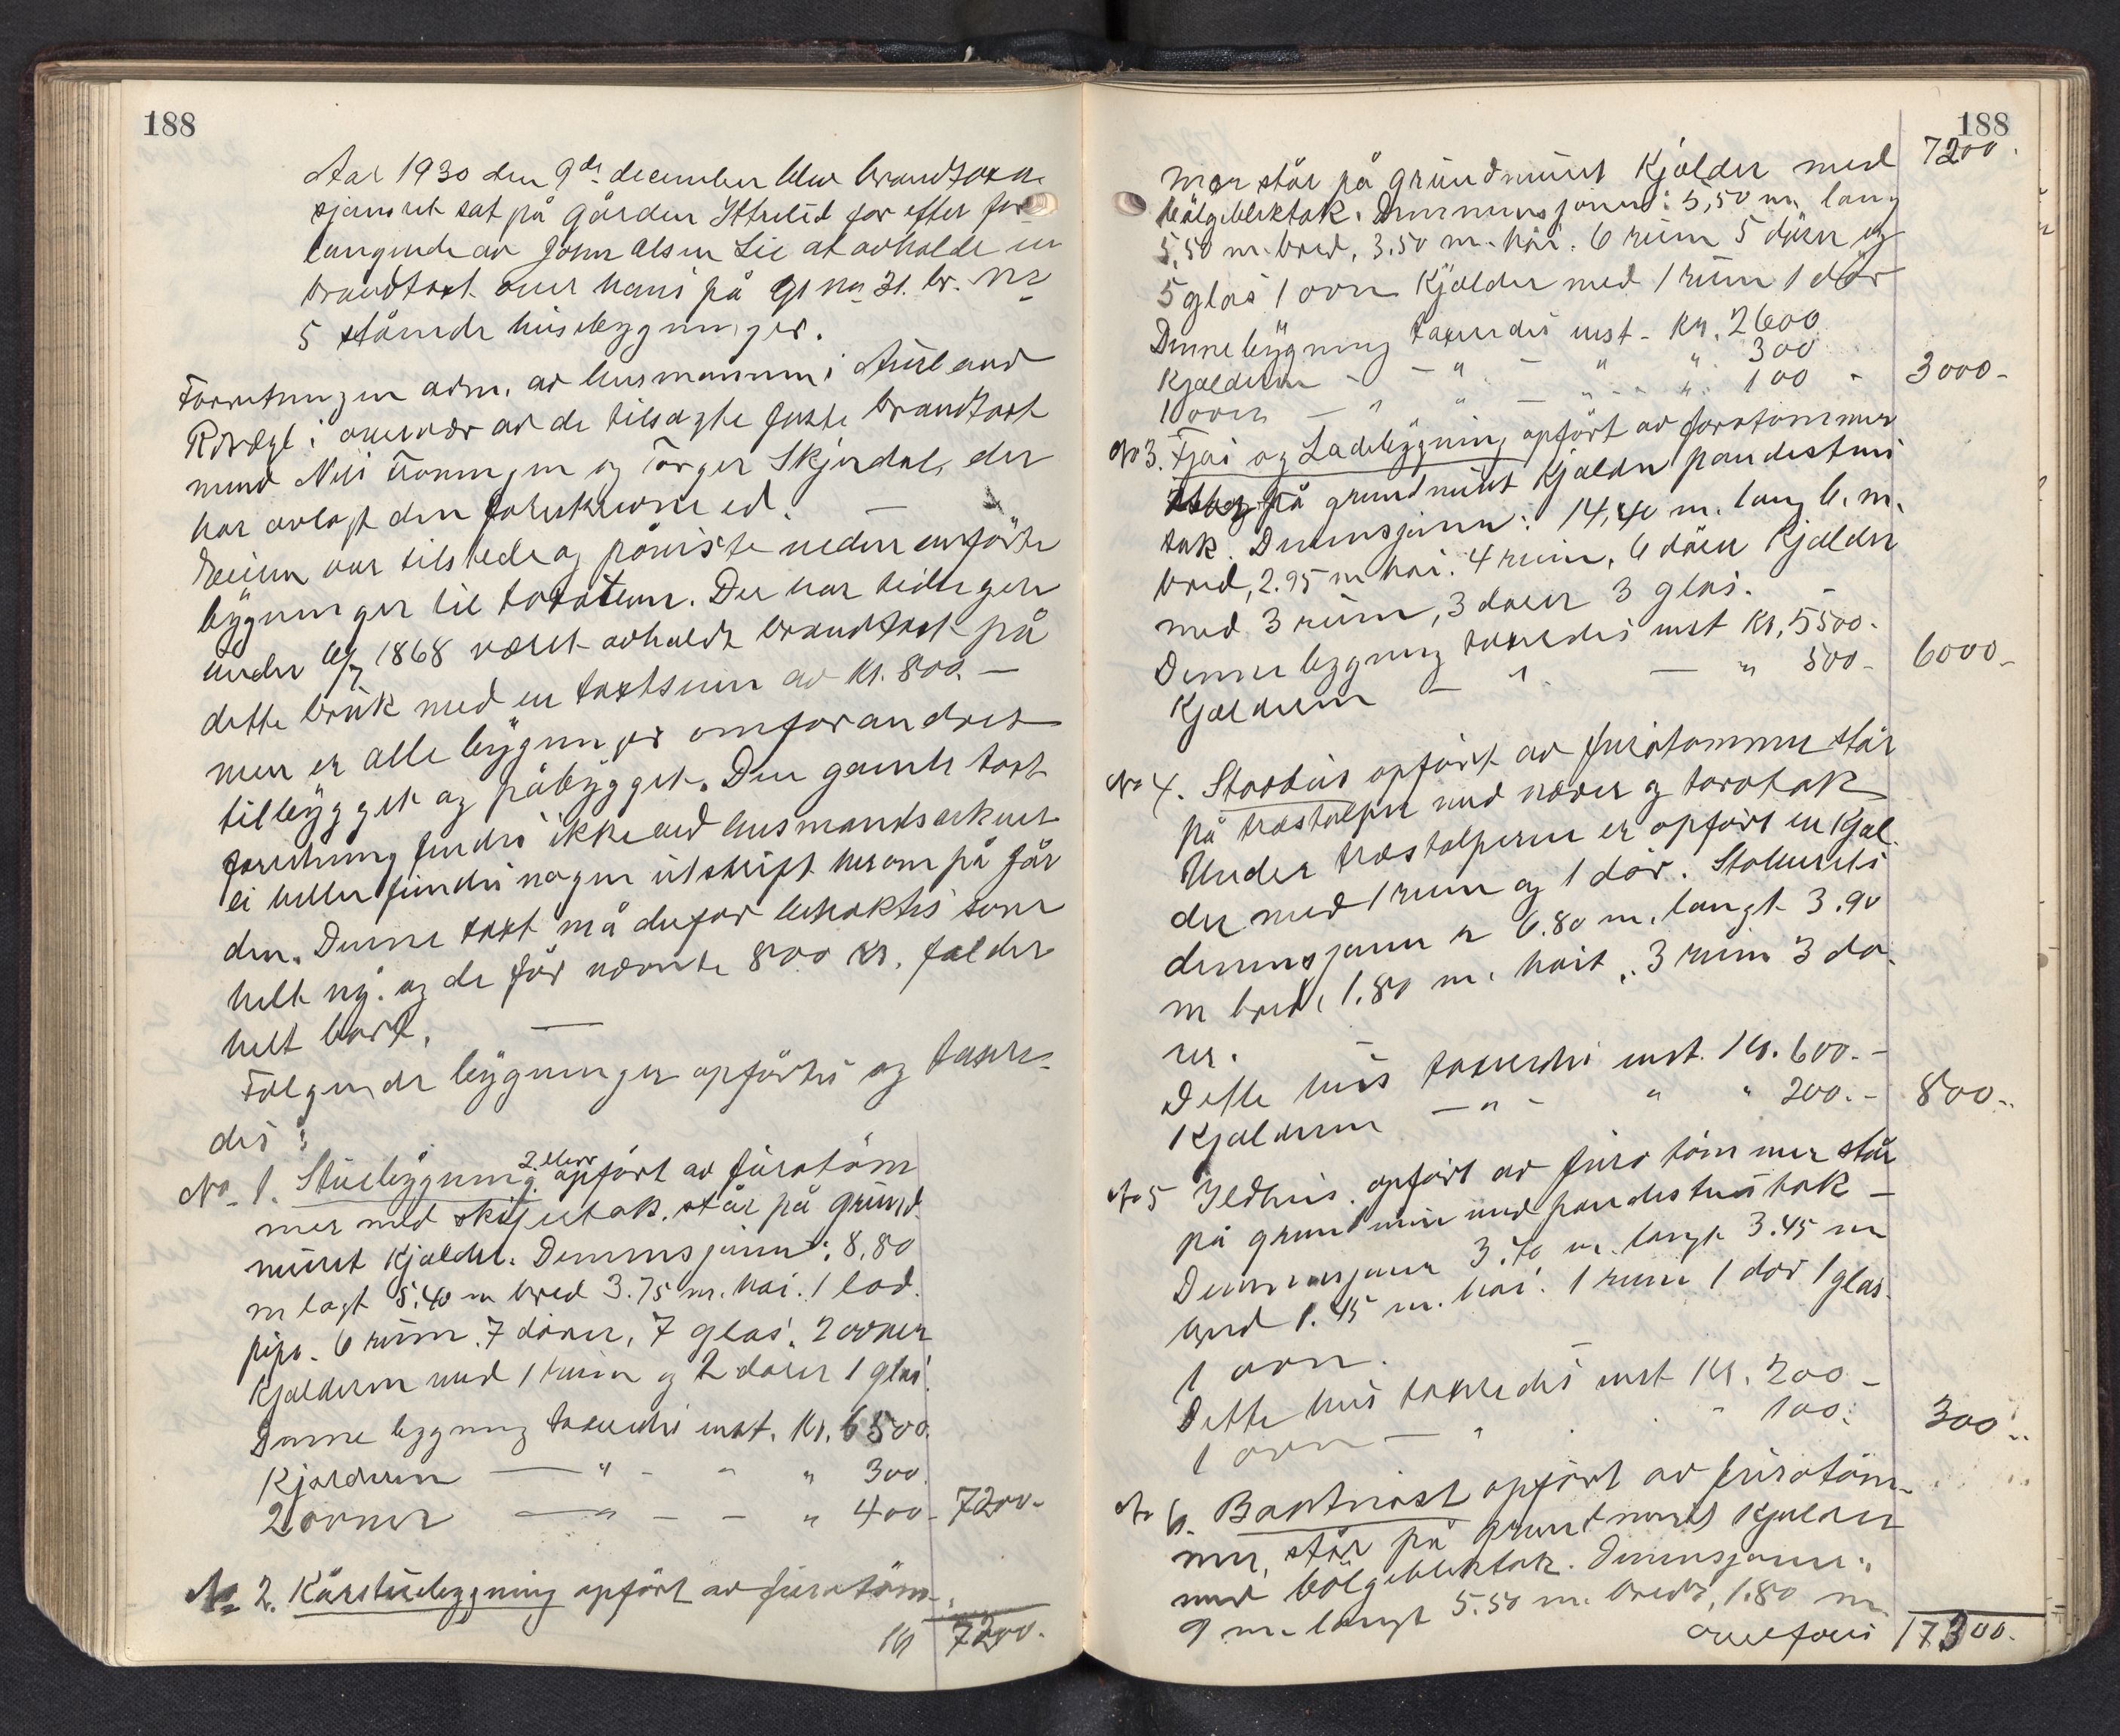 188
Aar 1930 den 9de december blev brandtaxa
sjonsret sat på gården Ytrelid for efter for
langende av John Olsen Lie at avholde en
brandtaxt over hans på g. no 31. br. no
5 stående husebygninger.
Forretningen adm. av lensmannen i Aurland
R. Wægt i overvær av de tilsagte faste brandtaxt
mend Nils Fronningen og Torger Skjerdal, der
har avlagt den foreskrevne ed. —
Eieren var tilstede og påviste nedenanførte
bygninger til taxation. Der har tidligere
under 6/7 1868 været avholdt brandtaxt på
dette bruk med en taxtsum av kr. 800. —
men er alle bygninger omforandret
tilbygget og påbygget. Den gamle taxt
forretning findes ikke ved lensmandsarkivet
ei heller findes nogen utskrift herom på går
den. Denne taxt må derfor betraktes som
helt ny. og de før nævnte 800 kr. falder
helt bort. —
Følgende bygninger opførtes og taxer-
des:
No 1. Stuebygning 2 etars opført av furutøm
mer med skifertak. står på grund
muret kjælder. Demensjoner: 8,80
m lagt 5.40 m bred 3.75 m. høi. 1 lod.
pipe. 6 rum. 7 dører, 7 glas. 2 ovner
Kjælderen med 1 rum og 2 dører 1 glas.
Denne bygning taxerdes enst. kr. 6500.
Kjælderen — " - " " 300.
2 ovner — " — - " 400- 7200-
No 2. Kårstuebygning opført av furutøm-
kr 7200.
188
mer står på grundmuret kjælder med 7200.
bølgebliktak. Demmensjoner: 5,50 m. lang
5,50 m. bred, 3.50 m. høi. 6 rum 5 dører og
5 glas 1 ovn Kjælder med 1 rum 1 dør
Denne bygning taxerdes enst - kr. 2600
Kjælderen - - " - " " 300
1 ovn — " " — " - " 100 - 3000-
No 3. Fjøs og Ladebygning opført av furutømmer
på grundmuret kjælder pandestens
tak. Demensjoner: 14,40 m. lang 6. m.
bred, 2.95 m høi. 4 rum, 6 dører Kjælder
med 3 rum, 3 dører 3 glas. -
Denne bygning taxerdes enst kr. 5500.
Kjælderen — " — " 500- 6000-
No 4. Stabbur opført av furutømmer står
på træstolper med næver og torvtak
Under træstolperne er opført en Kjæl.
der med 1 rum og 1 dør. Stabburets
demensjoner er 6.80 m. langt 3.90
m bred, 1.80 m. høit, 3 rum 3 dø-
rer.
Dette hus taxerdes enst. kr. 600.-
Kjælderen — " - " " 200.- 800-
No 5 Ildhus. opført av furutømmer står
på grundmur med pandestenstak —
Demensjoner 3.70 m. langt 3.45 m
bred 1.45 m. høi. 1 rum 1 dør 1 glas.
1 ovn.
Dette hus taxerdes enst kr. 200-
1 ovn — " - 100. 300-
No 6. Baatnøst opført av furutøm-
mer, står på grundmuret kjælder
med bølgebliktak. Demensjoner:
9 m. langt 5.50 m. bredt, 1.80 m.
overføres 17300.